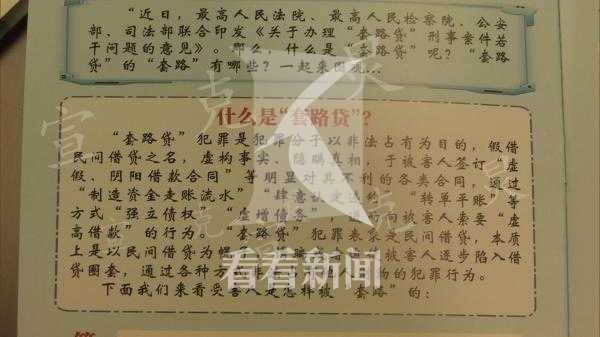 “近日，最高人民法院、最高人民检察院、公安
部、司法部联合印发《关于办理“套路贷”刑事案件若
干问题的意见》。那么，什么是“套路贷”呢？“套路
贷”的“套路”有哪些？一起来围观…
什么是“套路贷”？
“套路贷”犯罪是犯罪分子以非法占有为目的，假借
民间借贷之名，虚构事实、隐瞒真相，于被害人签订“虚
假、阴阳借款合同”等明显对其不利的各类合同，通过
“制造资金走账流水”“肆意认定违约”“转单平账”等
方式“强立债权”“虚增债务”，向被害人索要“虚
高借款”的行为。“套路贷”犯罪表象是民间借贷，本质
上是以民间借贷为 被害人逐步陷入借
贷圈套，通过各种方 的犯罪行为。
下面我们来看受害人是怎样被“套路”的：
看看新闻
宣克炅